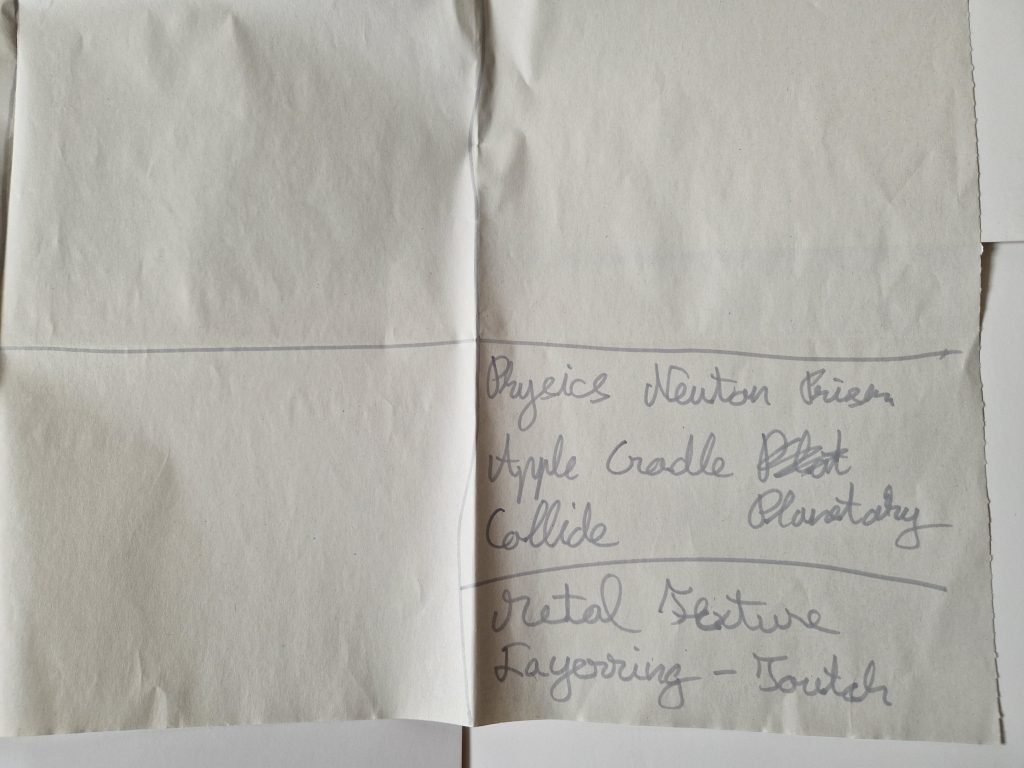 Physics Newton Prism
Apple Cradle
Collide Planetary
Metal Texture
Layerring - Toutch